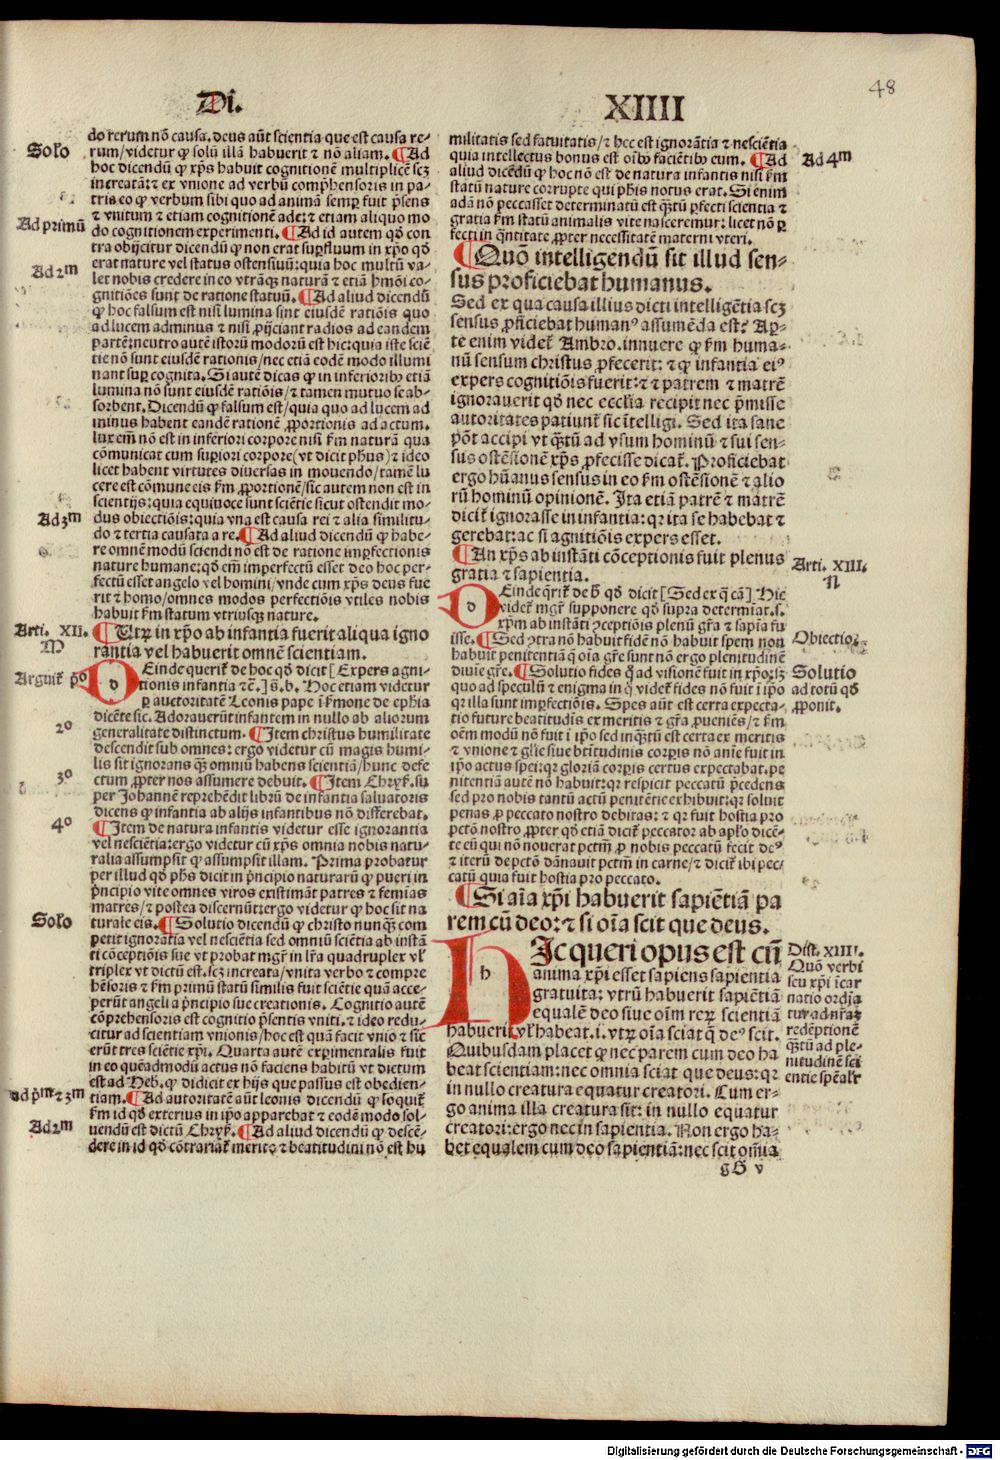 48
Di. XIIII
do rerum nō causa. deus aūt scientia que est causa re-
Solo
rum/videtur ꝙ solū illā habuerit ⁊ nō aliam. ¶ Ad
hoc dicendū ꝙ xp̄s habuit cognitionē multiplicē scꝫ
increatā: ⁊ ex vnione ad verbū comp̄hensoris in pa-
tris eo ꝙ verbum sibi quo ad animā semꝑ fuit p̄sens
⁊ vnitum ⁊ etiam cognitionē ade: ⁊ etiam aliquo mo
Ad primū
do cognitionem experimenti. ¶ Ad id autem qḋ con
tra obijcitur dicendū ꝙ non erat suꝑfluum in xp̄o qḋ
erat nature vel status ostensiuū: quia hoc multū va-
Ad 2m
let nobis credere in eo vtrāqꝫ naturā ⁊ etiā hmōi co-
gnitiōes sunt de ratione statuū. ¶ Ad aliud dicendū
ꝙ hoc falsum est nisi lumina sint eiusdē ratiōis quo
ad lucem ad minus ⁊ nisi ꝓijciant radios ad eandem
partē: neutro autē istorū modorū est hic: quia iste sciē
tie nō sunt eiusdē rationis/nec etiā eodē modo illumi
nant suꝑ cognita. Si autē dicas ꝙ in inferioribꝰ etiā
lumina nō sunt eiusdē ratiōis/⁊ tamen mutuo se ab-
sorbent. Dicendū ꝙ falsum est/quia quo ad lucem ad
minus habent eandē rationē ꝓportionis ad actum.
lux em̄ nō est in inferiori corpore nisi ẜm naturā qua
cōmunicat cum suꝑiori corpore (vt dicit ph̄us) ⁊ ideo
licet habent virtutes diuersas in mouendo/tamē lu
cere est cōmune eis ẜm ꝓportionē/sic autem non est in
scientijs: quia equiuoce sunt sciētie sicut ostendit mo-
Ad 3m
dus obiectiōis: quia vna est causa rei ⁊ alia similitu-
do ⁊ tertia causata a re. ¶ Ad aliud dicendū ꝙ habe-
re omnē modū sciendi nō est de ratione imꝑfectionis
nature humane: qḋ em̄ imperfectū esset deo hoc per-
fectū esset angelo vel homini/vnde cum xp̄s deus fue
rit ⁊ homo/omnes modos perfectiōis vtiles nobis
habuit ẜm statum vtriusqꝫ nature.
Arti. XII.
M
¶ Utꝝ in xp̄o ab infantia fuerit aliqua igno
rantia vel habuerit omnē scientiam.
Arguit̄ p̄o
DEinde querit̄ de hoc qḋ dicit [Expers agni-
tionis infantia ⁊c̄.] s. b. Hoc etiam videtur
ꝑ auctoritatē Leonis pape ī ẜmone de ep̄hia
dicēte sic. Adorauerūt infantem in nullo ab aliorum
2o
generalitate distinctum. ¶ Item christus humilitate
descendit sub omnes: ergo videtur cū magis humi-
lis sit ignorans qꝫ omniū habens scientiā/hunc defe
3o
ctum ꝓpter nos assumere debuit. ¶ Item Chryſ. su
per Johannē reprehēdit librū de infantia saluatoris
dicens ꝙ infantia ab alijs infantibus nō differebat.
4o
¶ Item de natura infantis videtur esse ignorantia
vel nesciētia: ergo videtur cū xp̄s omnia nobis natu-
ralia assumpsit ꝙ assumpsit illam. Prima probatur
per illud qḋ ph̄s dicit in p̄ncipio naturarū ꝙ pueri in
p̄ncipio vite omnes viros existimāt patres ⁊ femīas
matres/⁊ postea discernūt: ergo videtur ꝙ hoc sit na
Solo
turale eis. ¶ Solutio dicendū ꝙ christo nunqꝫ com
petit ignorātia vel nesciētia sed omniū sciētia ab instā
ti cōceptiōis sue vt probat mgr̄ in lr̄a quadruplex vl̄
triplex vt dictū est. scꝫ increata/vnita verbo ⁊ compre
hēsoris ⁊ ẜm primū statū similis fuit sciētie quā acce-
perūt angeli a p̄ncipio sue creationis. Cognitio autē
cōprehensoris est cognitio p̄sentis vniti. ⁊ ideo redu-
citur ad scientiam vnionis/hoc est quā facit vnio ⁊ sic
erūt tres sciētie xp̄i. Quarta autē exꝑimentalis fuit
in eo quēadmodū actus nō faciens habitū vt dictum
est ad Heb. ꝙ didicit ex hijs que passus est obedien-
ad p̄m ⁊ 3m
tiam. ¶ Ad autoritatē aūt leonis dicendū ꝙ loquit̄
ẜm id qḋ exterius in ip̄o apparebat ⁊ eodē modo sol-
Ad 2m
uendū est dictū Chryſ. ¶ Ad aliud dicendū ꝙ descē-
dere in id qḋ cōtrariat̄ merito ⁊ beatitudini nō est hu
militatis sed fatuitatis/⁊ hec est ignorātia ⁊ nesciētia
Ad 4m
quia intellectus bonus est oībꝰ faciētibꝰ eum. ¶ Ad
aliud dicēdū ꝙ hoc nō est de natura infantis nisi ẜm
statū nature corrupte qui ph̄is notus erat. Si enim
adā nō peccasset determinatū est qꝫtū ꝑfecti scientia ⁊
gratia ẜm statū animalis vite nasceremur: licet nō ꝑ
fecti in q̄ntitate ꝓpter necessitatē materni vteri.
¶ Quō intelligendū sit illud sen-
sus proficiebat humanus.
Sed ex qua causa illius dicti intelligētia scꝫ
sensus ꝓficiebat humanꝰ assumēda est? Aꝑ-
te enim videt̄ Ambro. innuere ꝙ ẜm huma-
nū sensum christus ꝓfecerit: ⁊ ꝙ infantia eiꝰ
expers cognitiōis fuerit: ⁊ ⁊ patrem ⁊ matrē
ignorauerit qḋ nec eccl̄ia recipit nec p̄misse
autoritates patiunt̄ sic ītelligi. Sed ita sane
pōt accipi vt qꝫtū ad vsum hominū ⁊ sui sen-
sus ostēsionē xp̄s ꝓfecisse dicat̄. Proficiebat
ergo hūanus sensus in eo ẜm ostēsionē ⁊ alio
rū hominū opinionē. Ita etiā patrē ⁊ matrē
dicit̄ ignorasse in infantia: qꝛ ita se habebat ⁊
gerebat: ac si agnitiōis expers esset.
¶ An xp̄s ab instāti cōceptionis fuit plenus
Arti. XIII.
N
gratia ⁊ sapientia.
DEinde q̄rit̄ de h̄ qḋ dicit [Sed ex q̄ cā] Hic
videt̄ mgr̄ supponere qḋ supra determīat. s.
xp̄m ab instāti ꝯceptiōis plenū gr̄a ⁊ sapīa fu
Obiectio
isse. ¶ Sed ꝯtra nō habuit fidē nō habuit spem non
habuit penitentiā q̄ oīa gr̄e sunt nō ergo plenitudinē
Solutio
ad totū qḋ
ꝓponit.
diuīe gr̄e. ¶ Solutio fides q̄ ad visionē fuit in xp̄o: licꝫ
quo ad speculū ⁊ enigma in q̄ videt̄ fides nō fuit ī ip̄o
qꝛ illa sunt imꝑfectiōis. Spes aūt est certa expecta-
tio future beatitudīs ex meritis ⁊ gr̄a ꝓueniēs/⁊ ẜm
oēm modū nō fuit ī ip̄o sed inqꝫtū est certa ex meritis
⁊ vnione ⁊ gl̄ie siue btītudinis corꝑis nō aīe fuit in
ip̄o actus spei: qꝛ gloriā corꝑis certus expectabat. pe
nitentiā autē nō habuit: qꝛ respicit peccatū p̄cedens
sed pro nobis tantū actū penitētie exhibuit: qꝛ soluit
penas ꝓ peccato nostro debitas: ⁊ qꝛ fuit hostia pro
pctō nostro/ꝓpter qḋ etiā dicit̄ peccator ab aplo dicē-
te eū qui nō nouerat pctm̄ ꝓ nobis peccatū fecit deꝰ
⁊ iterū de pctō dānauit pctm̄ in carne/⁊ dicit̄ ibi pec-
catū quia fuit hostia pro peccato.
¶ Si aīa xp̄i habuerit sapiētiā pa
rem cū deo: ⁊ si oīa scit que deus.
Dist. XIIII.
Quō verbi
seu xp̄i īcar
natio ordīa
tur ad nr̄aꝫ
redēptionē
qꝫtū ad ple
nitudinē sci
entie spēalr̄
HIc queri opus est cū
anima xp̄i esset sapiens sapientia
gratuita: vtrū habuerit sapiētiā
equalē deo siue oīm reꝝ scientiā
habuerit vl̄ habeat. i. vtꝝ oīa sciat q̄ deꝰ scit.
Quibusdam placet ꝙ nec parem cum deo ha
beat scientiam: nec omnia sciat que deus: qꝛ
in nullo creatura equatur creatori. Cum er-
go anima illa creatura sit: in nullo equatur
creatori: ergo nec in sapientia. Non ergo ha-
bet equalem cum deo sapientiā: nec scit om̄ia
gG v
Digitalisierung gefördert durch die Deutsche Forschungsgemeinschaft - DFG